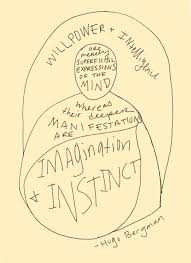 WILLPOWER + Intelligence
are merely
SUPERFICIAL
EXPRESSIONS
OF THE
MIND
whereas
their deepest
MANIFESTATIONS
ARE
IMAGINATION
+ INSTINCT
-Hugo Bergman